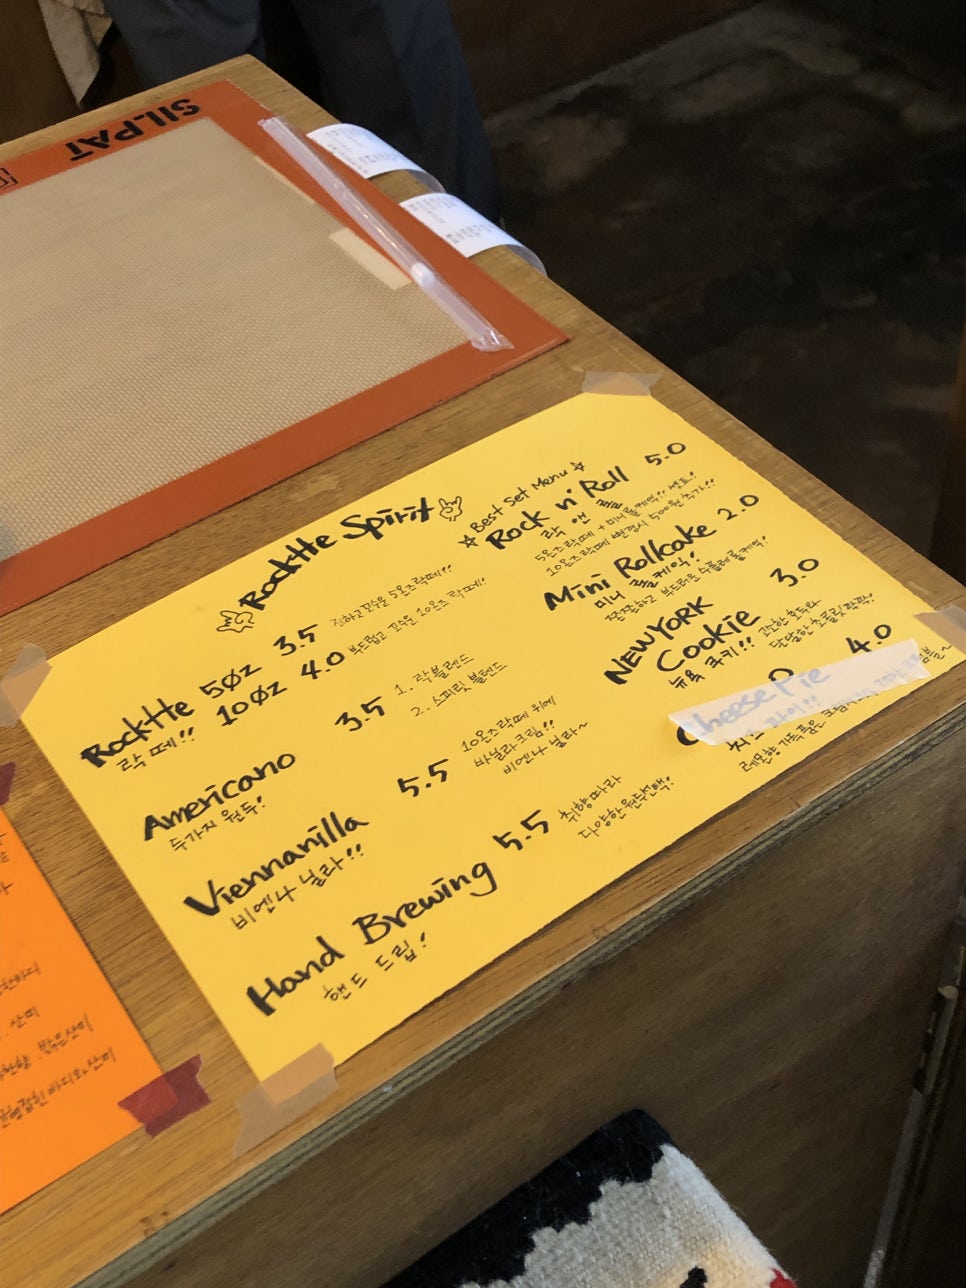 SILPAT
Rocktte Spirit
Rocktte 5Øz 3.5 진하고꼬수운 5온즈락떼!!
락떼!! 10Øz 4.0 부드럽고 꼬수운 10온즈 락떼!!
Americano 3.5 1. 락블렌드
두가지 원두! 2. 스피릿 블렌드
Viennanilla 5.5 10온즈락떼 위에
비엔나 닐라!! 바닐라크림!!
비엔나 닐라~
Hand Brewing 5.5 취향따라
핸드 드립! 다양한원두선택!
☆Best Set Menu☆
Rock n' Roll 5.0
락 앤 롤
5온즈락떼 + 미니롤케익!! 세트!
10온즈락떼 변경시 500원 추가!!
Mini Rollcake 2.0
미니 롤케익!
쫀쫀하고 부드러운 수플레롤케익!
NEWYORK
Cookie 3.0
뉴욕 쿠키!! 고소한 호두와
달달한 초콜릿팍팍!
Cheese Pie 4.0
파이!!